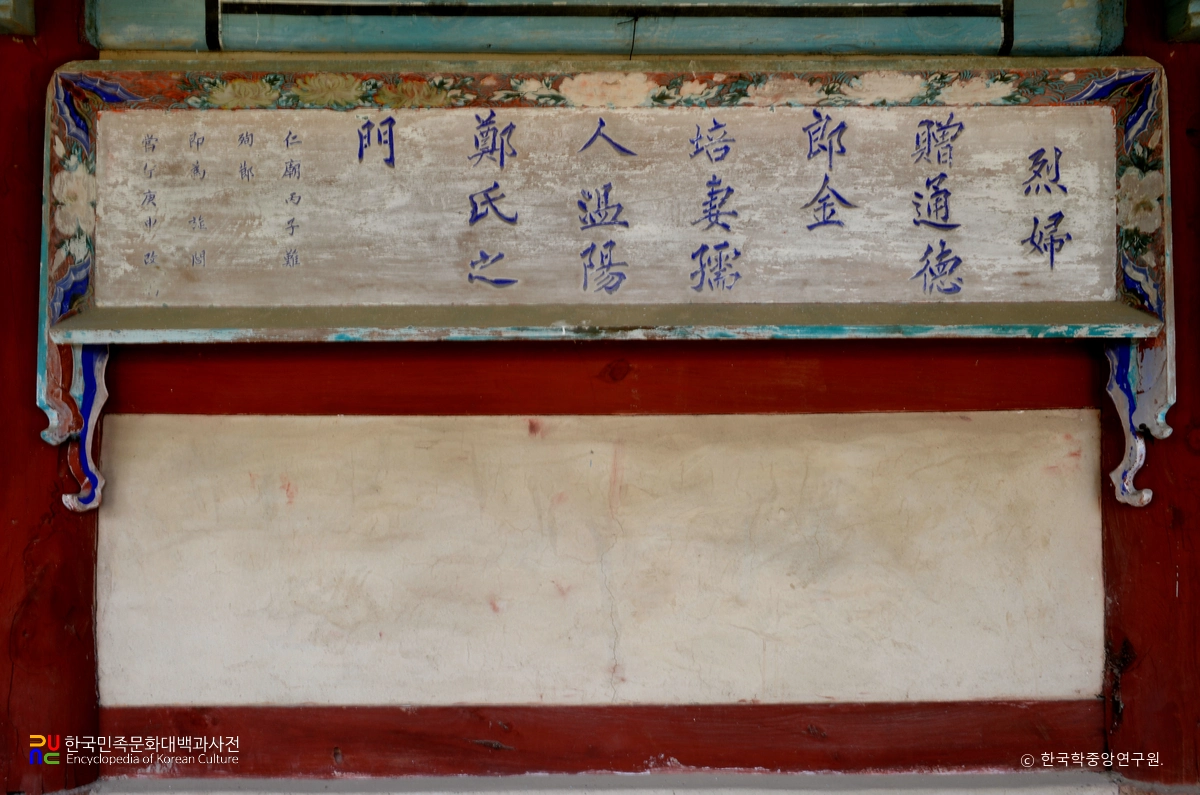 烈婦
贈通德
郎金
培妻孺
人溫陽
鄭氏之
門
仁廟丙子難
殉節
即爲旌閭
當宁庚申改
한국민족문화대백과사전
Encyclopedia of Korean Culture
ⓒ 한국학중앙연구원.